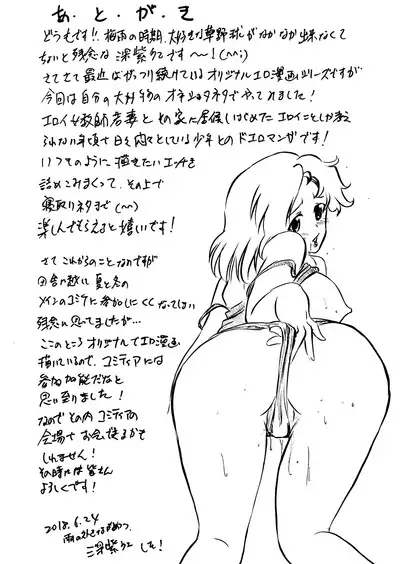 あ・と・が・き
どうもです!! 梅雨の時期、大好きな草野球がなかなか出来なくて
ちょいと残念な 深紫クエです〜! (^^;)
さてさて最近はがっつり続けているオリジナルエロ漫画シリーズですが
今回は自分の大好物のオネショタネタでやってみました!
エロイ女教師若妻とその家に居候しはじめたエロイことしか考え
られない年頃で日々悶々としている少年とのドエロマンガです!
いつものように描きたいエッチを
詰めこみまくって、その上で
寝取りネタまで (^^)
楽しんでもらえると嬉しいです!
さて これからのことなのですが
夏と冬の
メインのコミケに参加しにくくなってしまい
残念に思ってましたが…
ここのところオリジナルでエロ漫画
描いているので、コミティアには
参加可能だなと
思い到りました!
なので その内 コミティアの
会場でお会い出来るかも
しれません!
その時には皆さん
よろしくです!
2018.6.24
深紫クエ でした!